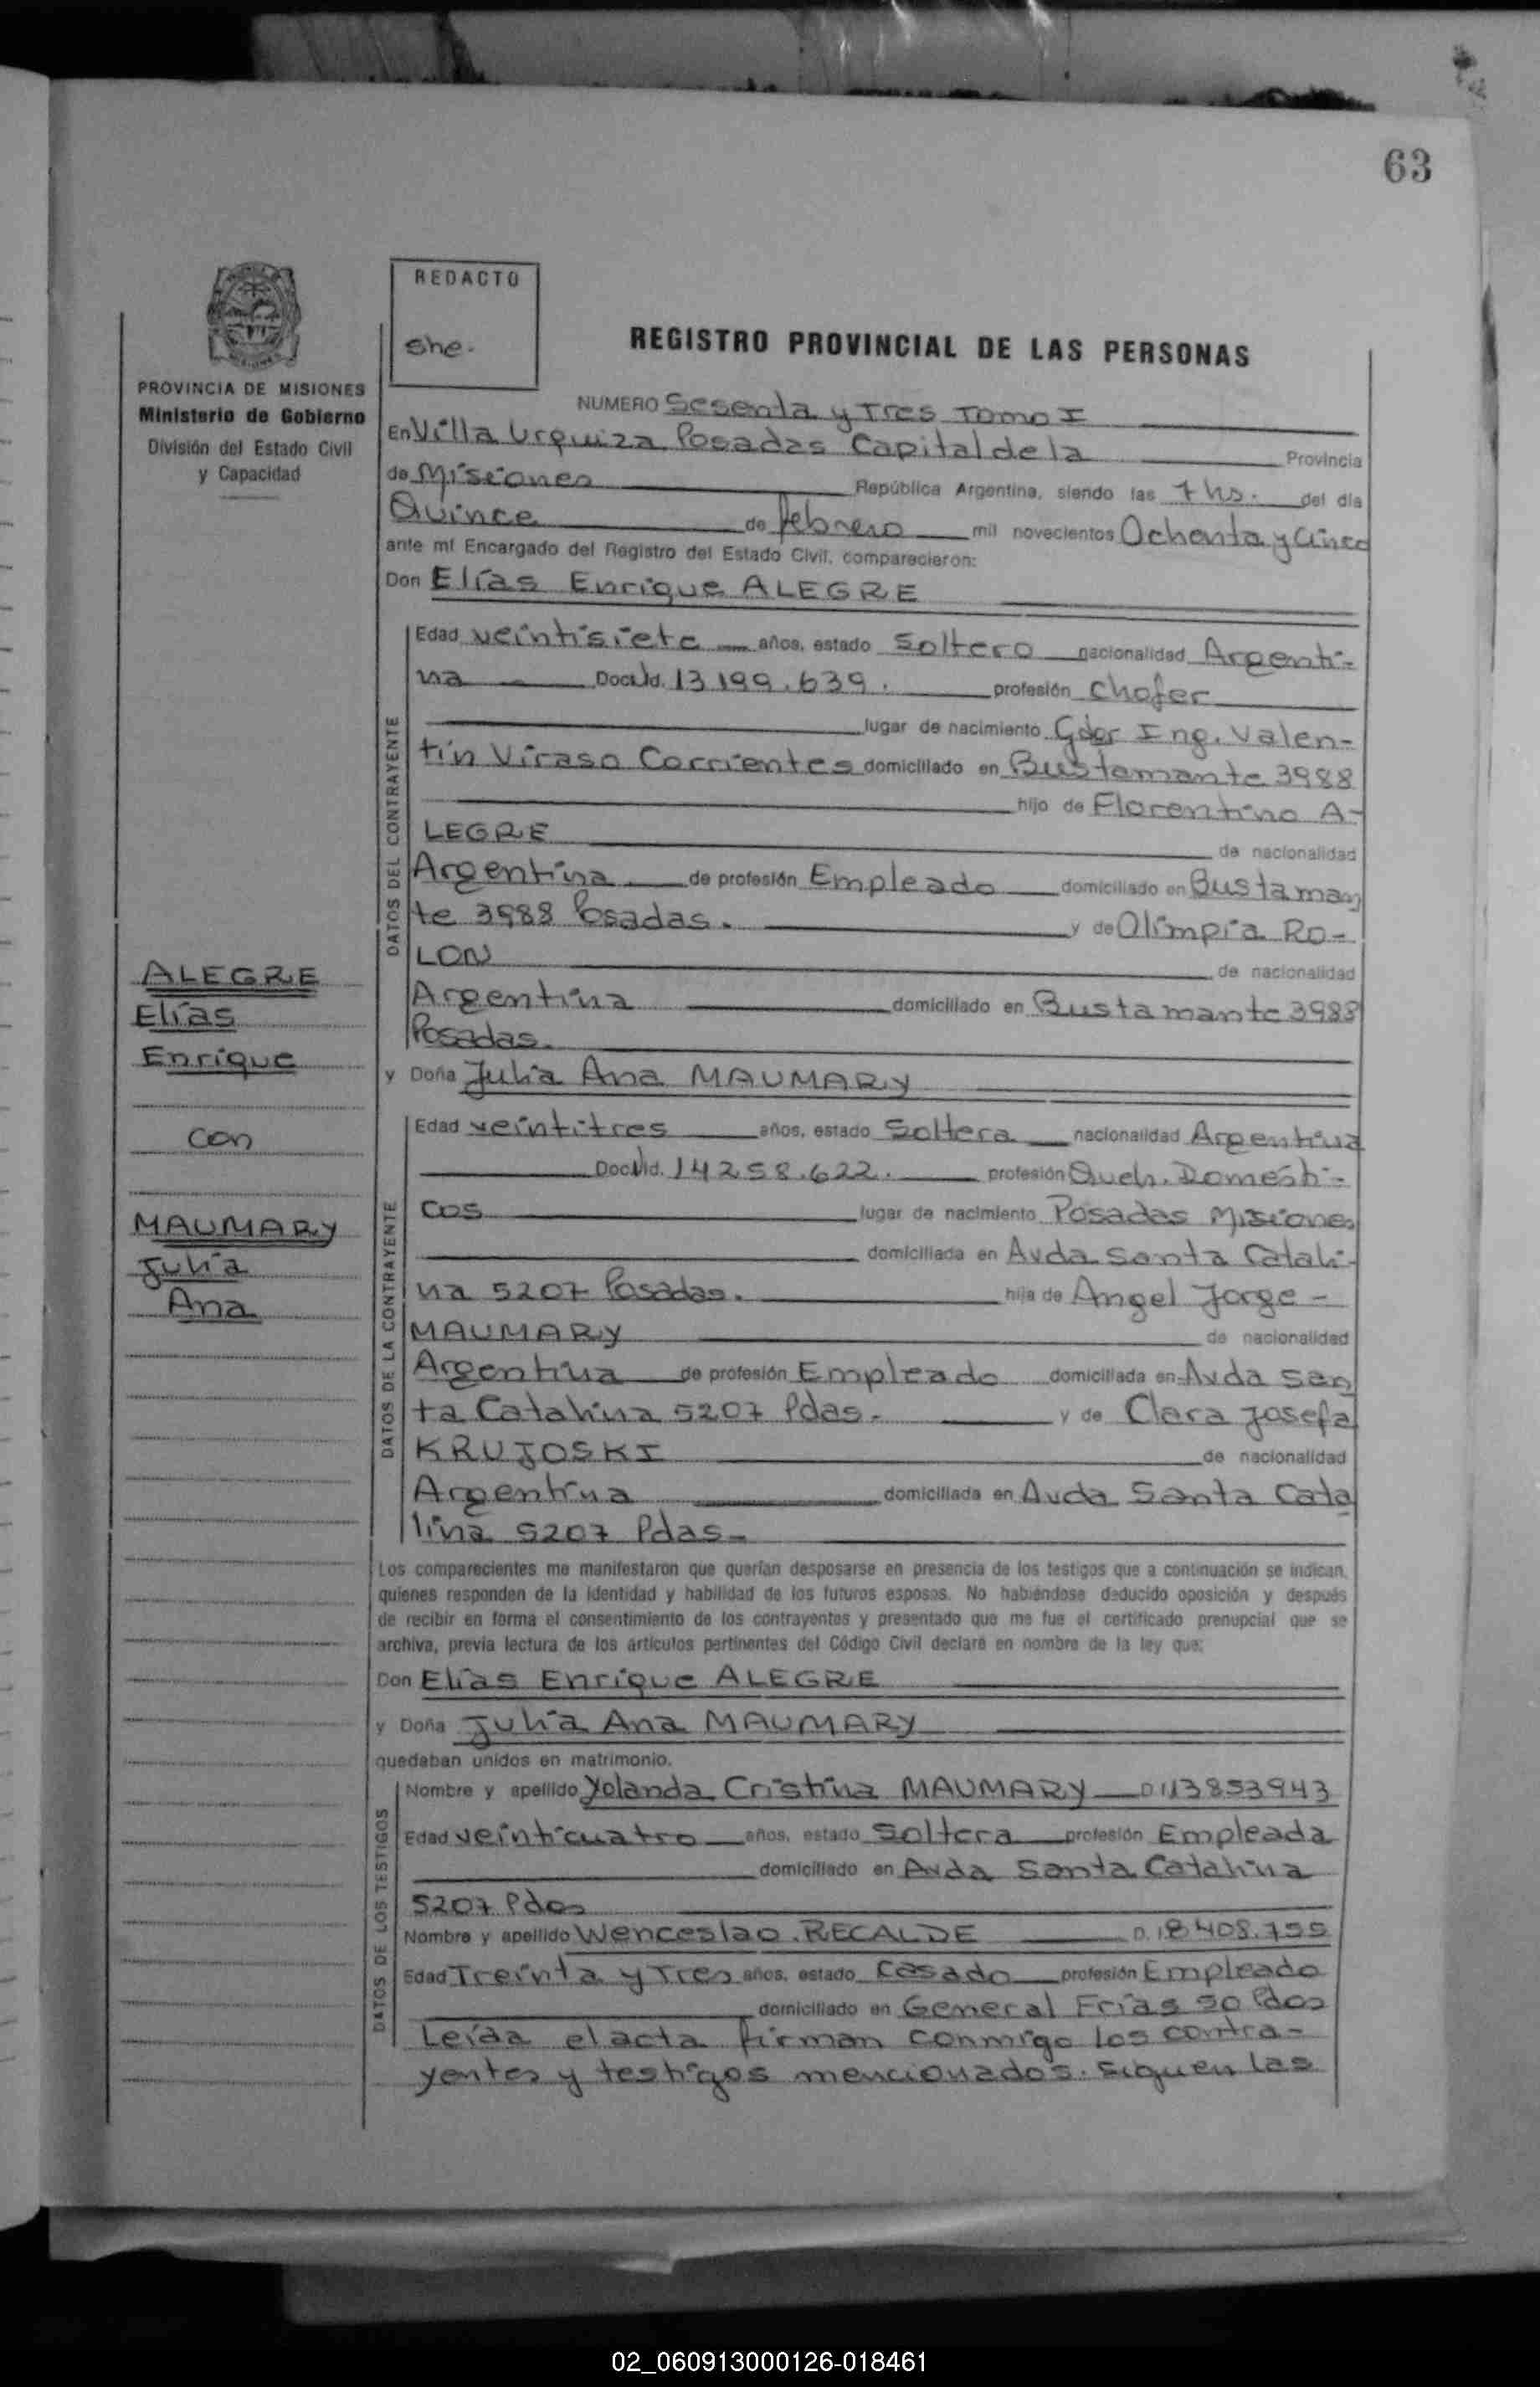 63
REDACTO
she.
REGISTRO PROVINCIAL DE LAS PERSONAS
PROVINCIA DE MISIONES
Ministerio de Gobierno
División del Estado Civil
y Capacidad
NUMERO Sesenta y Tres Tomo I
En Villa Urquiza Posadas Capital de la Provincia
de Misiones República Argentina, siendo las 7 hs. del día
Quince de febrero mil novecientos Ochenta y Cinco
ante mí Encargado del Registro del Estado Civil, comparecieron:
Don Elías Enrique ALEGRE
DATOS DEL CONTRAYENTE
Edad veintisiete años, estado Soltero nacionalidad Argenti-
na Doc. Id. 13199.639. profesión Chofer
lugar de nacimiento Gdor Ing. Valen-
tín Viraso Corrientes domiciliado en Bustamante 3988
hijo de Florentino A-
LEGRE de nacionalidad
Argentina de profesión Empleado domiciliado en Bustaman
te 3988 Posadas. y de Olimpia Ro-
LON de nacionalidad
Argentina domiciliado en Bustamante 3988
Posadas.
y Doña Julia Ana MAUMARY
ALEGRE
Elías
Enrique
con
MAUMARY
Julia
Ana
DATOS DE LA CONTRAYENTE
Edad veintitres años, estado Soltera nacionalidad Argentina
Doc. Id. 14258.622. profesión Queh. Domesti-
cos lugar de nacimiento Posadas Misiones
domiciliada en Avda Santa Catali-
na 5207 Posadas. hija de Angel Jorge -
MAUMARY de nacionalidad
Argentina de profesión Empleado domiciliada en Avda San
ta Catalina 5207 Pdas. y de Clara Josefa
KRUJOSKI de nacionalidad
Argentina domiciliada en Avda Santa Cata
lina 5207 Pdas-
Los comparecientes me manifestaron que querían desposarse en presencia de los testigos que a continuación se indican,
quienes responden de la identidad y habilidad de los futuros esposos. No habiéndose deducido oposición y después
de recibir en forma el consentimiento de los contrayentes y presentado que me fue el certificado prenupcial que se
archiva, previa lectura de los artículos pertinentes del Código Civil declaré en nombre de la ley que:
Don Elías Enrique ALEGRE
y Doña Julia Ana MAUMARY
quedaban unidos en matrimonio.
DATOS DE LOS TESTIGOS
Nombre y apellido Yolanda Cristina MAUMARY 13853943
Edad veinticuatro años, estado Soltera profesión Empleada
domiciliado en Avda Santa Catalina
5207 Pdas
Nombre y apellido Wenceslao RECALDE D.I 8408.755
Edad Treinta y Tres años, estado Casado profesión Empleado
domiciliado en General Frías 50 Pdas
Leída el acta firman conmigo los contra-
yentes y testigos mencionados. siguen las
02_060913000126-018461